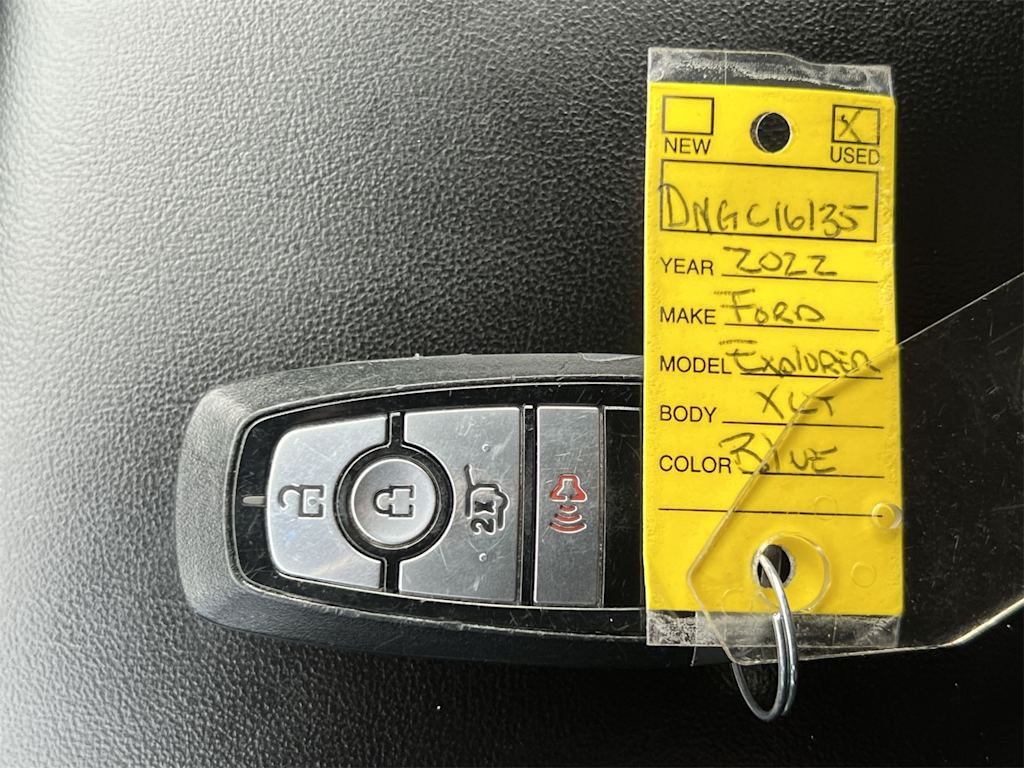 NEW
X
USED
DNGC16135
YEAR 2022
MAKE FORD
MODEL EXPLORER
BODY XLT
COLOR BLUE
2X